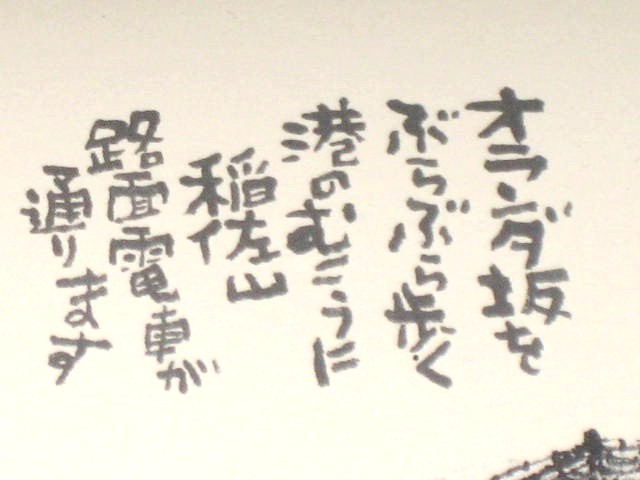 オランダ坂を
ぶらぶら歩く
港のむこうに
稲佐山
路面電車が
通ります